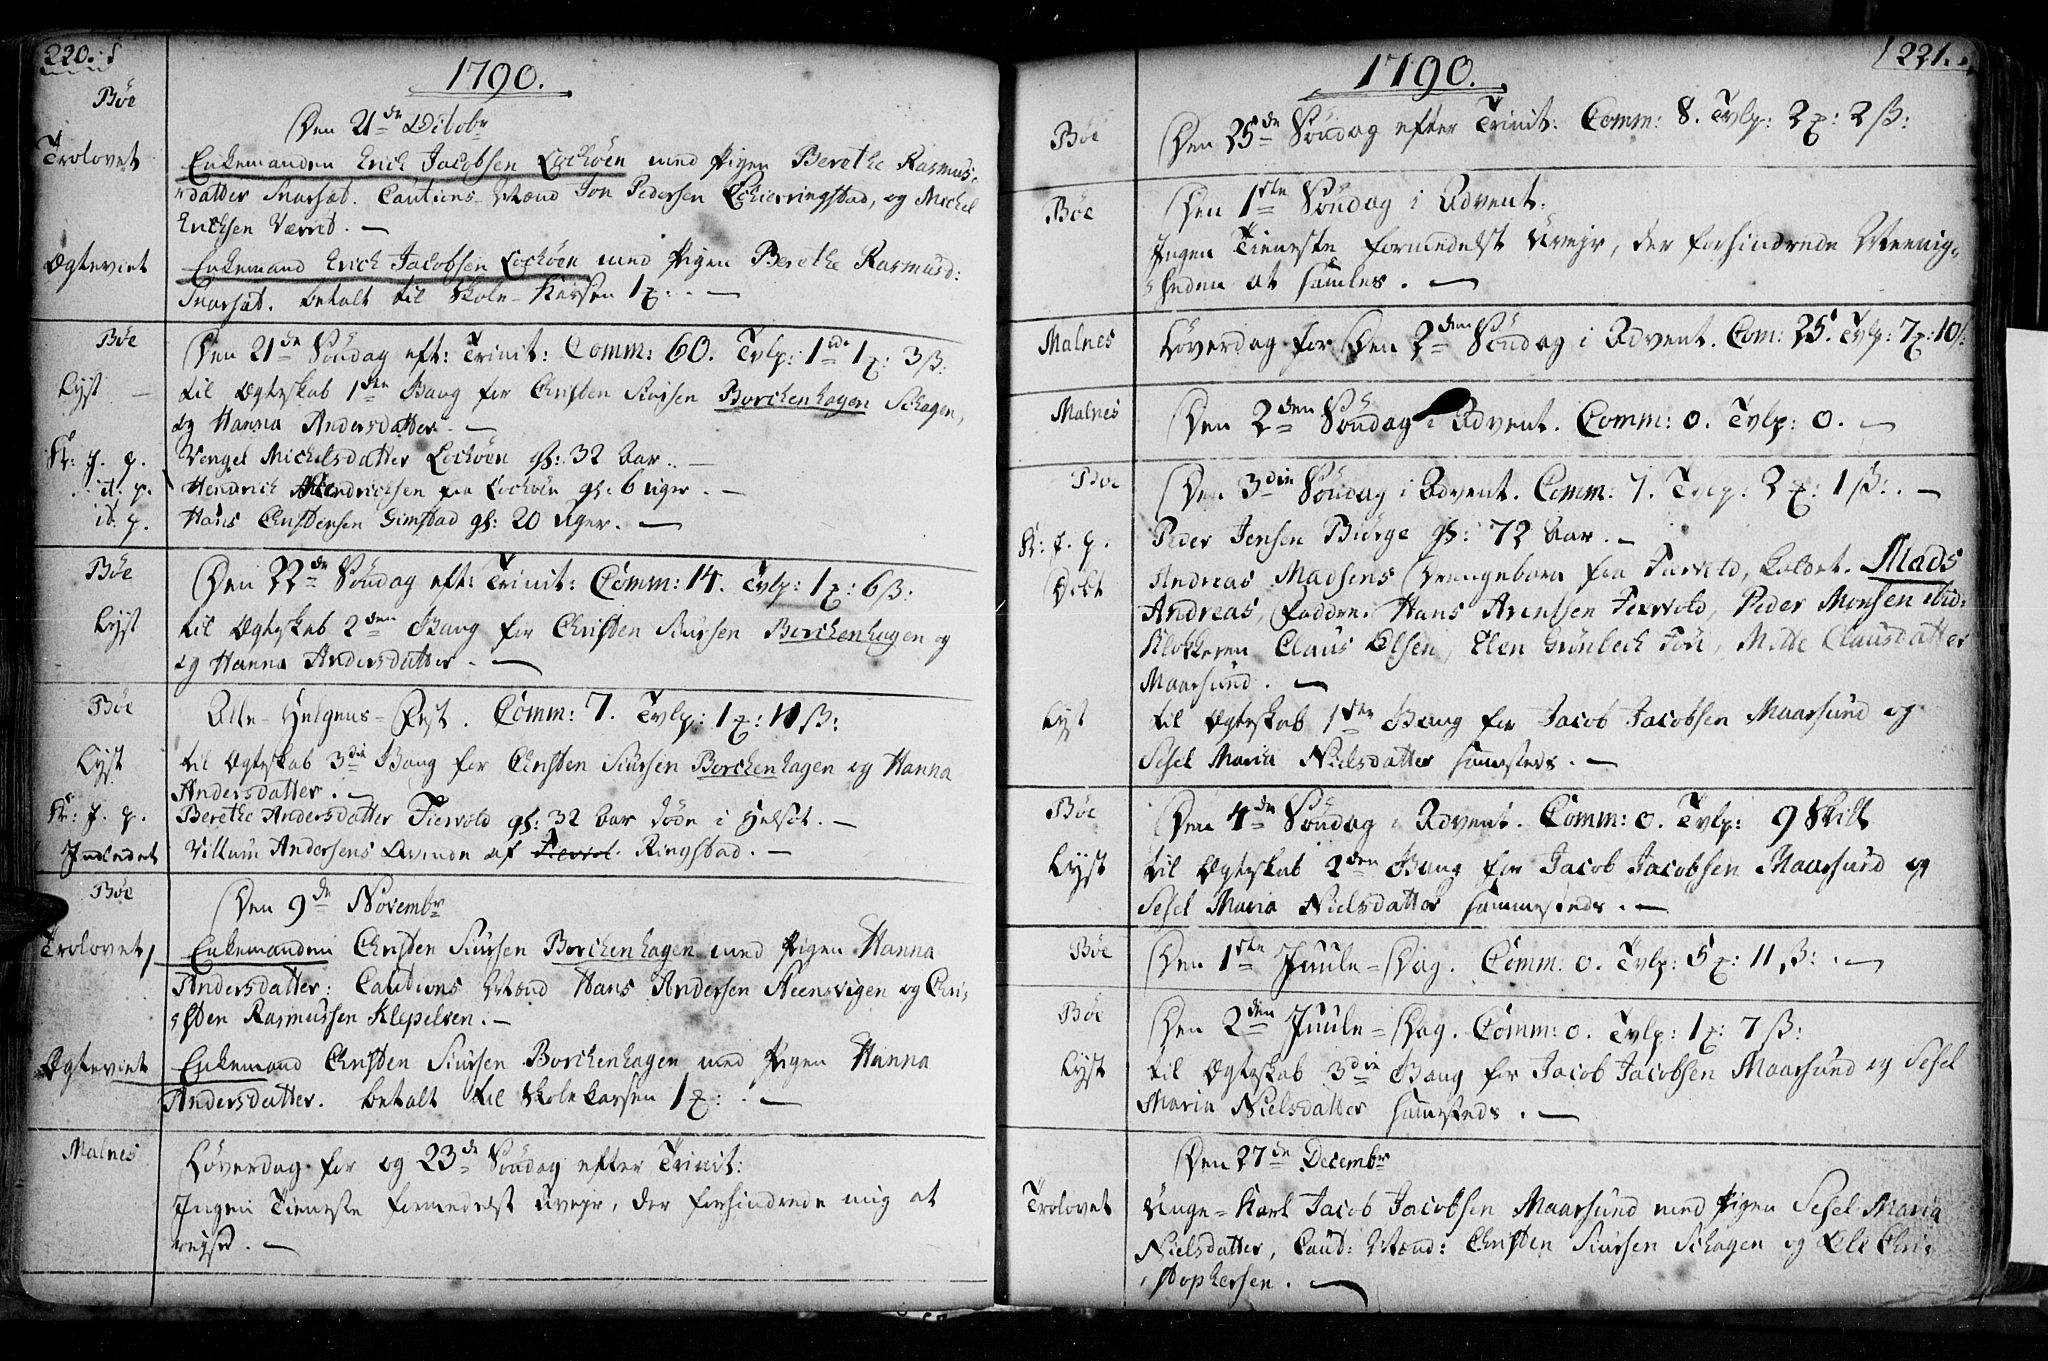 220.
1790.
Bøe
Den 21de Octobr
Trolovet
Enkemanden Erich Jacobsen Lochøen med Pigen Berethe Rasmus-
datter Snarset. Cautions-Mænd Jon Pedersen Schierringstad, og Michel
Erichsen Værrit. —
Ægteviet
Enkemand Erich Jacobsen Lochøen med Pigen Berethe Rasmusd:
Snarset. betalt til Skole-Kassen 1 : . —
Bøe
Den 21de Søndag eft: Trinit: Comm: 60. Tvlp: 1 1 : 3 ß:
Lyst —
til Ægteskab 1ste Gang for Christen Siursen Borchenhagen Schagen,
og Hanna Andersdatter. —
K: J. p.
Vengel Michelsdatter Lochøen gl: 32 Aar. —
it: p.
Hendrich Hendrichsen fra Lochøen gl: 6 Uger. —
it: p.
Hans Christensen Gimstad gl: 20 Uger. —
Bøe
Den 22de Søndag eft: Trinit: Comm: 14. Tvlp: 1 : 6 ß:
Lyst
til Ægteskab 2den Gang for Christen Siursen Borchenhagen og
og Hanna Andersdatter. —
Bøe
Alle-Helgens-Fest. Comm: 7. Tvlp: 1 : 11 ß:
Lyst
til Ægteskab 3die Gang for Christen Siursen Borchenhagen og Hanna
Andersdatter. —
K: J. p.
Berethe Andersdatter Fiervold gl: 32 Aar døde i Helset. —
Indledet
Villum Andersens Qvinde af Ringstad. —
Bøe
Den 9de Novembr
Trolovet
Enkemanden Christen Siursen Borchenhagen med Pigen Hanna
Andersdatter: Cautions Mænd Hans Andersen Steensvigen og Chri-
sten Rasmussen Klepelven. —
Ægteviet
Enkemand Christen Siursen Borchenhagen med Pigen Hanna
Andersdatter. betalt til Skolekassen 1 : . —
Malnes
Løverdag for og 23de Søndag efter Trinit:
Ingen Tieneste formedelst Uvejr, der forhindrede mig at
reyse. —
221.
1790.
Bøe
Den 25de Søndag efter Trinit: Comm: 8. Tvlp: 2 : 2 ß:
Bøe
Den 1ste Søndag i Advent.
Ingen Tieneste formedelst Uvejr, der forhindrede Meenig-
heden at samles. —
Malnes
Løverdag for Den 2den Søndag i Advent. Com: 25. Tvlp: 7 : 10 ß:
Malnes
Den 2den Søndag i Advent. Comm: 0. Tvlp: 0. —
Bøe
Den 3die Søndag i Advent. Comm: 7. Tvlp: 2 : 1 ß: . —
K: J. p.
Peder Jensen Biørge gl: 72 Aar. —
Døbt
Andreas Madsens Drengebarn fra Fiervold, kaldet. Mads
Andreas, Faddere. Hans Arentsen Fiervold, Peder Monsen ibid:
Klokkeren Claus Olsen, Elen Grønbech Føre, Mette Clausdatter
Maarsund. —
Lyst
til Ægteskab 1ste Gang for Jacob Jacobsen Maarsund og
Sesel Maria Nielsdatter sammesteds. —
Bøe
Den 4de Søndag i Advent. Comm: 0. Tvlp: 9 Skill
Lyst
til Ægteskab 2den Gang for Jacob Jacobsen Maarsund og
Sesel Maria Nielsdatter sammesteds. —
Bøe
Den 1ste Juule-Dag. Comm: 0. Tvlp: 5 : 11 ß: . —
Bøe
Den 2den Juule-Dag. Comm: 0. Tvlp: 1 : 7 ß:
Lyst
til Ægteskab 3die Gang for Jacob Jacobsen Maarsund og Sesel
Maria Nielsdatter sammesteds. —
Den 27de Decembr
Trolovet
Unge-Karl Jacob Jacobsen Maarsund med Pigen Sesel Maria
Nielsdatter, Caut: Mænd: Christen Siursen Schagen og Ole Chri-
stophersen. —